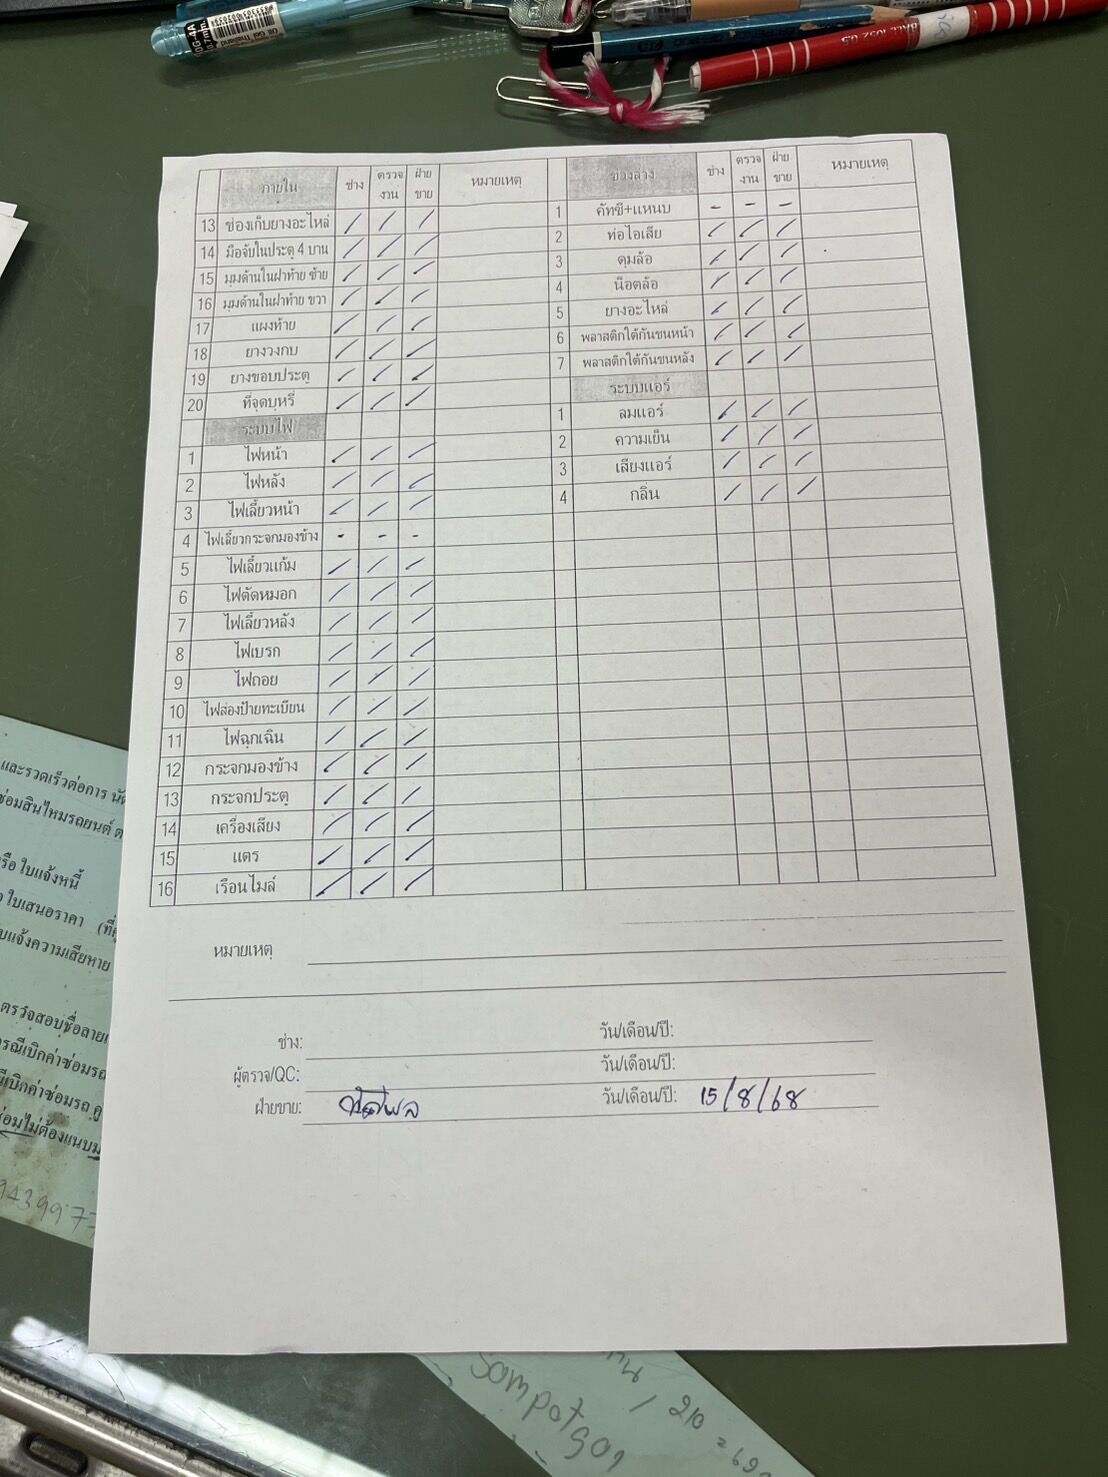 OG-4A
0.7mm.
Oil Gel
Thailand
BALL 1052 0.5
ภายใน ช่าง ตรวจงาน ฝ่ายขาย หมายเหตุ
13 ช่องเก็บยางอะไหล่ / / /
14 มือจับในประตู 4 บาน / / /
15 มุมด้านในฝาท้าย ซ้าย / / /
16 มุมด้านในฝาท้าย ขวา / / /
17 แผงท้าย / / /
18 ยางวงกบ / / /
19 ยางขอบประตู / / /
20 ที่จุดบุหรี่ / / /
ระบบไฟ
1 ไฟหน้า / / /
2 ไฟหลัง / / /
3 ไฟเลี้ยวหน้า / / /
4 ไฟเลี้ยวกระจกมองข้าง - - -
5 ไฟเลี้ยวแก้ม / / /
6 ไฟตัดหมอก / / /
7 ไฟเลี้ยวหลัง / / /
8 ไฟเบรก / / /
9 ไฟถอย / / /
10 ไฟส่องป้ายทะเบียน / / /
11 ไฟฉุกเฉิน / / /
12 กระจกมองข้าง / / /
13 กระจกประตู / / /
14 เครื่องเสียง / / /
15 แตร / / /
16 เรือนไมล์ / / /
ช่วงล่าง ช่าง ตรวจงาน ฝ่ายขาย หมายเหตุ
1 คัทซี+แหนบ - - -
2 ท่อไอเสีย / / /
3 ดุมล้อ / / /
4 น็อตล้อ / / /
5 ยางอะไหล่ / / /
6 พลาสติกใต้กันชนหน้า / / /
7 พลาสติกใต้กันชนหลัง / / /
ระบบแอร์
1 ลมแอร์ / / /
2 ความเย็น / / /
3 เสียงแอร์ / / /
4 กลิ่น / / /
หมายเหตุ
ช่าง: วัน/เดือน/ปี:
ผู้ตรวจ/QC: วัน/เดือน/ปี:
ฝ่ายขาย: วัน/เดือน/ปี: 15/8/68
และรวดเร็วต่อการ
ซ่อมสินไหมรถยนต์
ใบแจ้งหนี้
ใบเสนอราคา
บแจ้งความเสียหาย
ตรวจสอบชื่อ
รณีเบิกค่าซ่อมรถ
เบิกค่าซ่อมรถ
ซ่อมไม่ต้องแนบ
94399
210 =